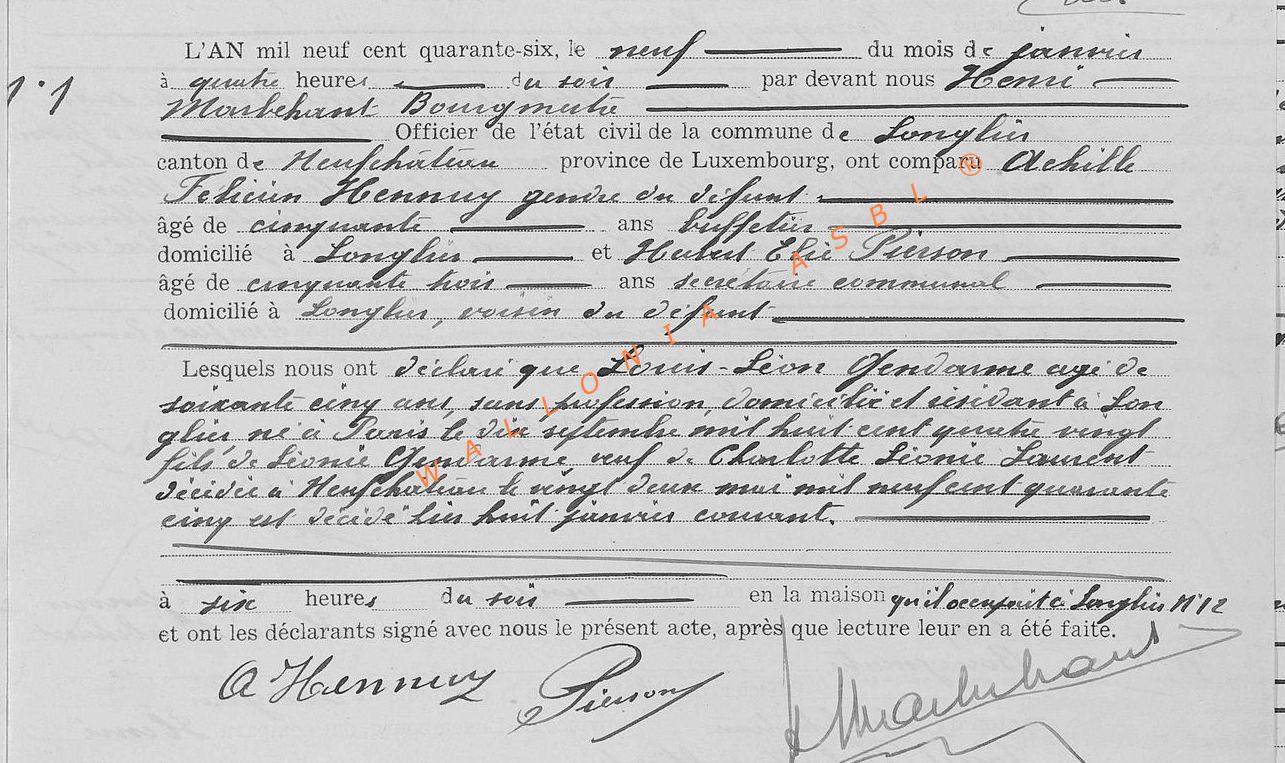 L'AN mil neuf cent quarante-six, le neuf du mois de janvier
N° 1
à quatre heures du soir par devant nous Henri
Marbehant Bourgmestre
Officier de l'état civil de la commune de Longlier
canton de Neufchâteau province de Luxembourg, ont comparu Achille
Félicien Hennuy gendre du défunt
âgé de cinquante ans buffetier
domicilié à Longlier et Hubert Elie Pierson
âgé de cinquante trois ans secrétaire communal
domicilié à Longlier, voisin du défunt
Lesquels nous ont déclaré que Louis-Léon Gendarme agé de
soixante cinq ans, sans profession, domicilié et résidant à Lon
glier, né à Paris le dix septembre mil huit cent quatre vingt
fils de Léonie Gendarme, veuf de Charlotte Léonie Laurent
décédée à Neufchateau le vingt deux mai mil neuf cent quarante
cinq est décédé hier huit janvier courant.
à six heures du soir en la maison qu'il occupait à Longlier N° 12
et ont les déclarants signé avec nous le présent acte, après que lecture leur en a été faite.
A Hennuy Pierson Marbehant
WALLONIA ASBL ®